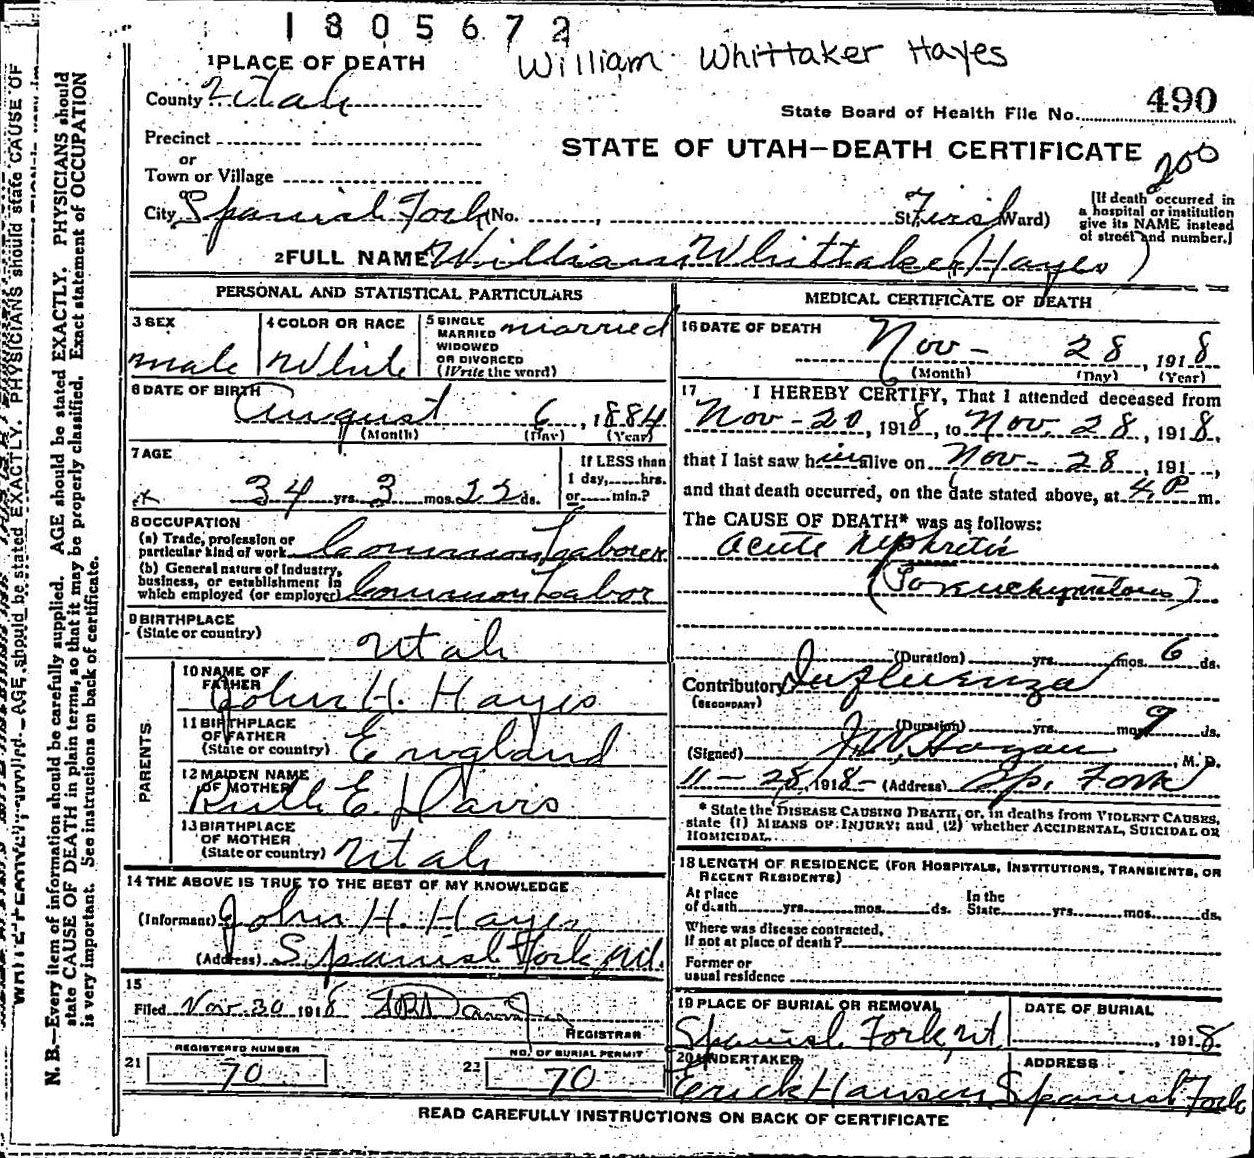 1805672
William Whittaker Hayes
1 PLACE OF DEATH
County Utah
State Board of Health File No. 490
Precinct
or
Town or Village
STATE OF UTAH—DEATH CERTIFICATE
200
City Spanish Fork (No. , St. First Ward)
[If death occurred in
a hospital or institution
give its NAME instead
of street and number.]
2 FULL NAME William Whittaker Hayes
PERSONAL AND STATISTICAL PARTICULARS
3 SEX
male
4 COLOR OR RACE
White
5 SINGLE
MARRIED
WIDOWED
OR DIVORCED
(Write the word)
married
6 DATE OF BIRTH
August 6, 1884
(Month) (Day) (Year)
7 AGE
34 yrs. 3 mos. 22 ds.
If LESS than
1 day, hrs.
or min.?
8 OCCUPATION
(a) Trade, profession or
particular kind of work Common Laborer
(b) General nature of Industry,
business, or establishment in
which employed (or employer) Common Labor
9 BIRTHPLACE
(State or country)
Utah
PARENTS
10 NAME OF
FATHER
John H. Hayes
11 BIRTHPLACE
OF FATHER
(State or country) England
12 MAIDEN NAME
OF MOTHER
Ruth E. Davis
13 BIRTHPLACE
OF MOTHER
(State or country) Utah
14 THE ABOVE IS TRUE TO THE BEST OF MY KNOWLEDGE
(Informant) John H. Hayes
(Address) Spanish Fork
15
Filed Nov. 30 1918
REGISTRAR
21 REGISTERED NUMBER
70
22 NO. OF BURIAL PERMIT
70
MEDICAL CERTIFICATE OF DEATH
16 DATE OF DEATH
Nov - 28, 1918
(Month) (Day) (Year)
17 I HEREBY CERTIFY, That I attended deceased from
Nov - 20, 1918, to Nov. 28, 1918,
that I last saw him alive on Nov - 28, 191 ,
and that death occurred, on the date stated above, at 4 P m.
The CAUSE OF DEATH* was as follows:
Acute Nephritis
(Duration) yrs. mos. 6 ds.
Contributory Influenza
(SECONDARY)
(Duration) yrs. mos. 9 ds.
(Signed) J.W. Hagan, M.D.
11 - 28, 1918 - (Address) Sp. Fork
* State the DISEASE CAUSING DEATH, or, in deaths from VIOLENT CAUSES,
state (1) MEANS OF INJURY; and (2) whether ACCIDENTAL, SUICIDAL OR
HOMICIDAL.
18 LENGTH OF RESIDENCE (FOR HOSPITALS, INSTITUTIONS, TRANSIENTS, OR
RECENT RESIDENTS)
At place In the
of death yrs. mos. ds. State yrs. mos. ds.
Where was disease contracted,
If not at place of death?
Former or
usual residence
19 PLACE OF BURIAL OR REMOVAL
Spanish Fork, Ut
DATE OF BURIAL
, 1918.
20 UNDERTAKER
Erick Hansen
ADDRESS
Spanish Fork
READ CAREFULLY INSTRUCTIONS ON BACK OF CERTIFICATE
N. B.—Every item of information should be carefully supplied. AGE should be stated EXACTLY. PHYSICIANS should
state CAUSE OF DEATH in plain terms, so that it may be properly classified. Exact statement of OCCUPATION
is very important. See instructions on back of certificate.
AGE should be stated EXACTLY. PHYSICIANS should state CAUSE OF